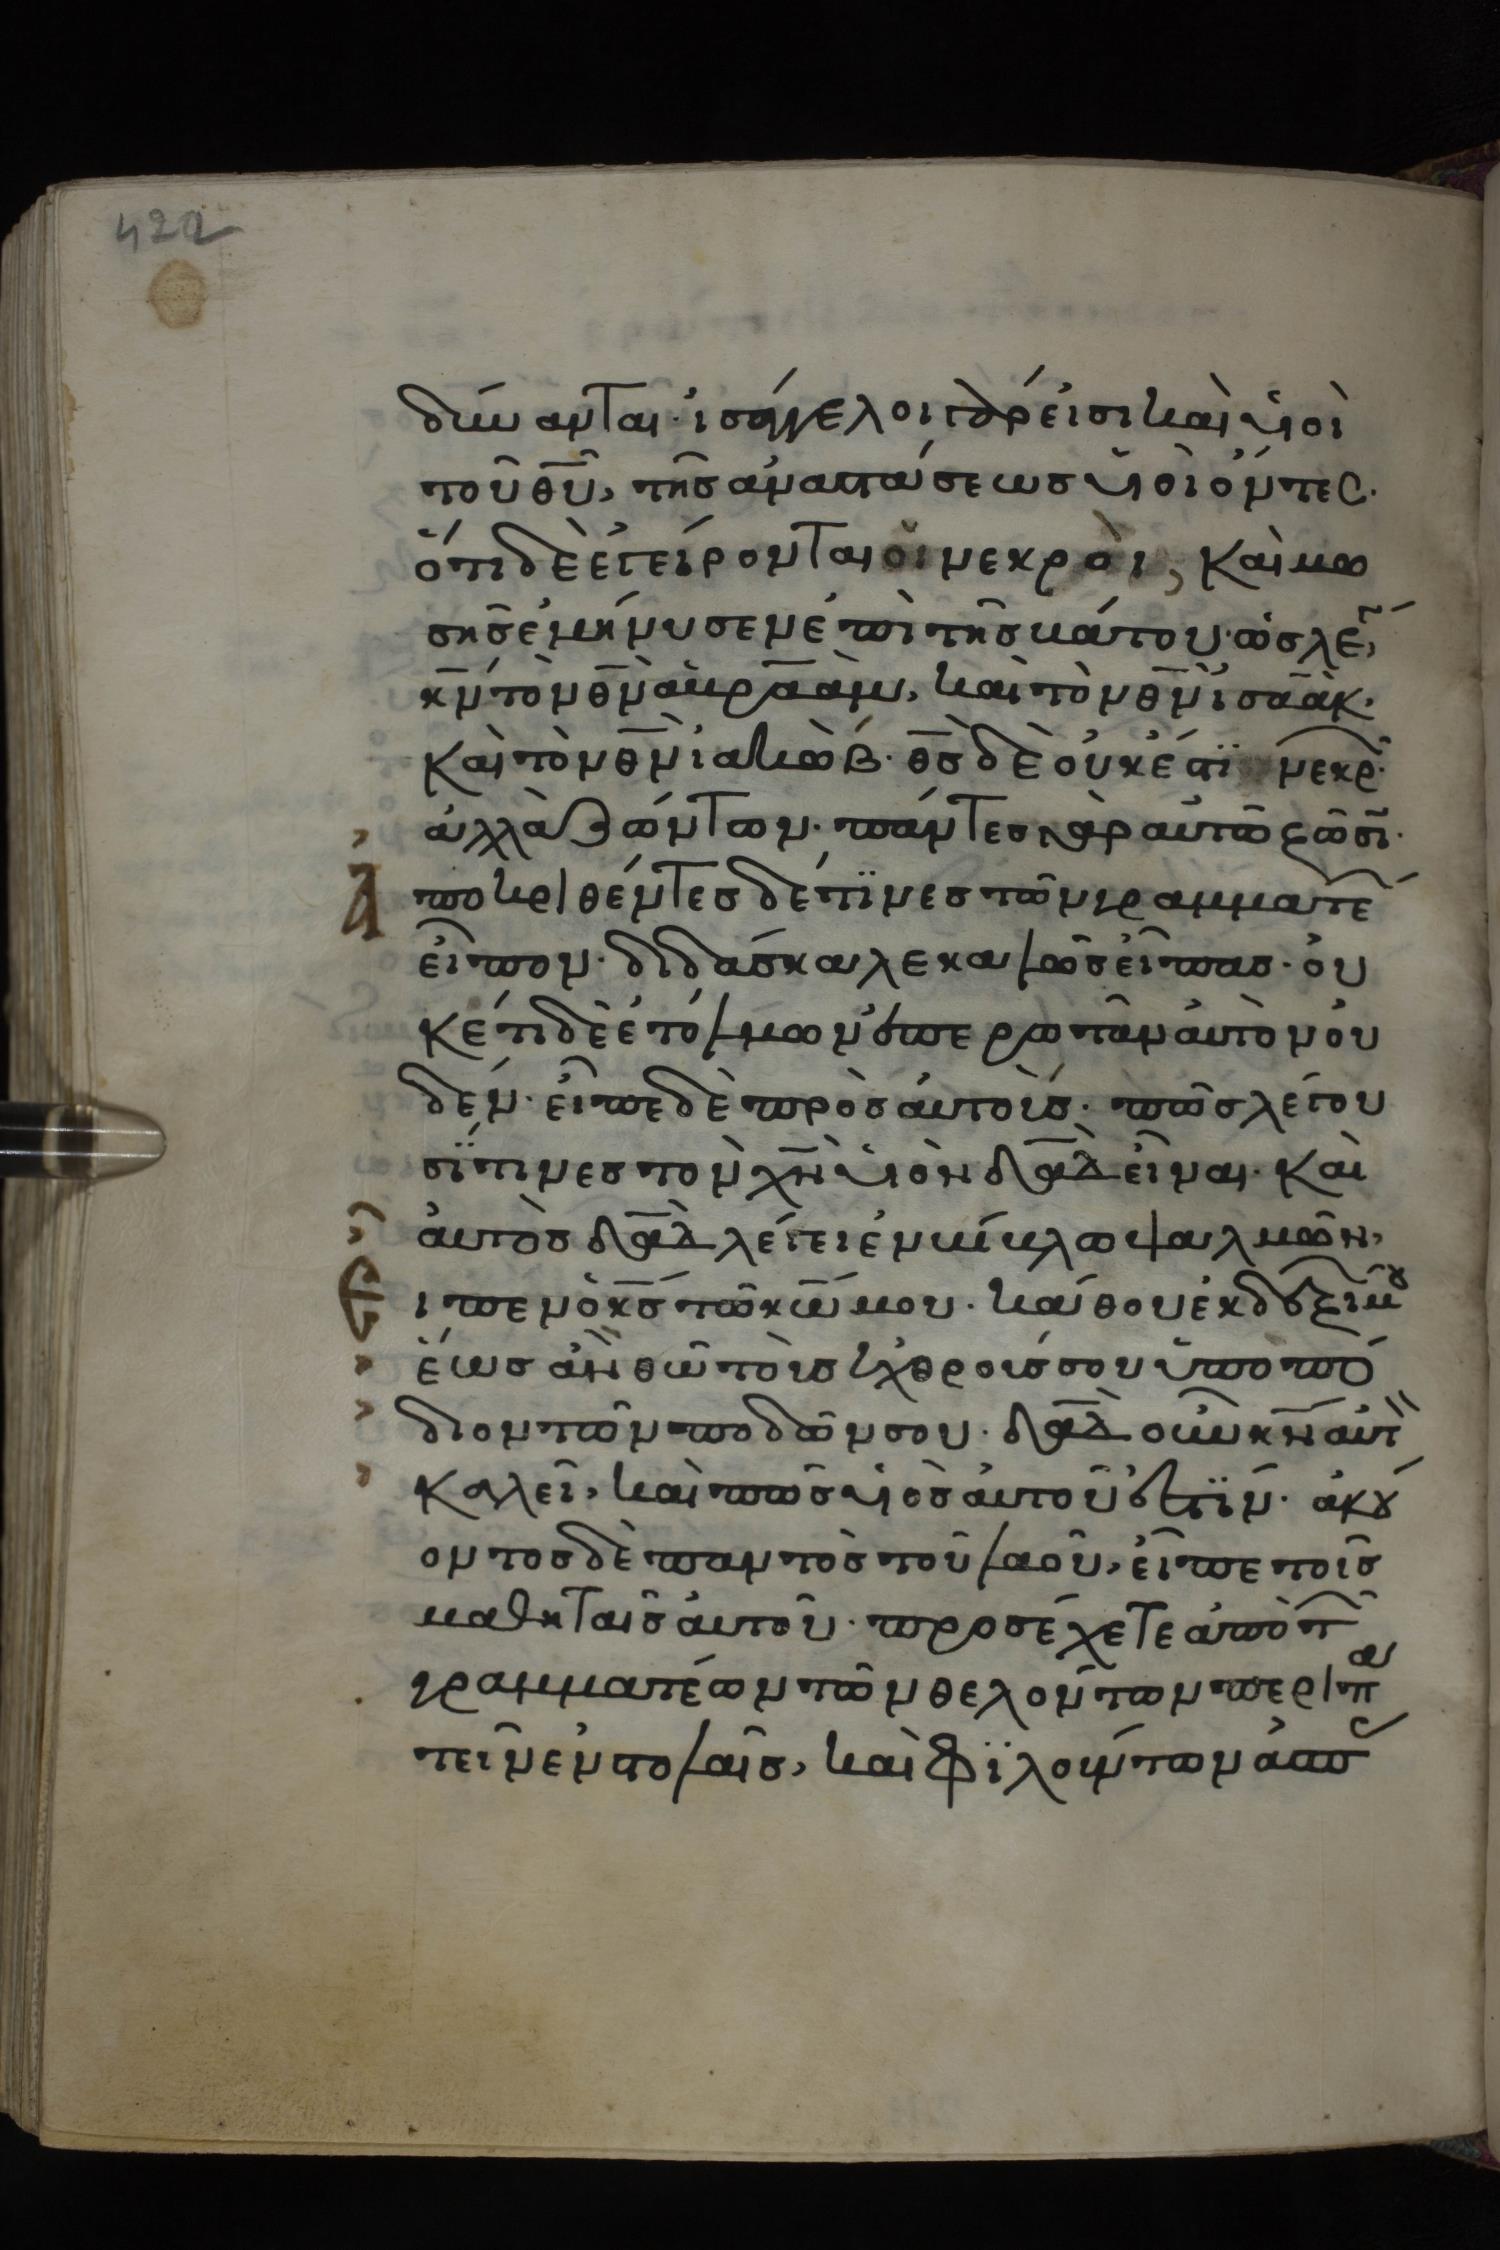 422
δύνανται· ἰσάγγελοι γάρ εἰσι καὶ υἱοὶ
τοῦ θ̅υ̅, τῆς ἀναπαύσεως υἱοὶ ὄντες.
ὅτι δὲ ἐγείρονται οἱ νεκροὶ, καὶ μω
σῆς ἐμήνυσεν ἐπὶ τῆς βάτου· ὡς λέγ
κ̅ν̅ τὸν θ̅ν̅ ἀβραὰμ, καὶ τὸν θ̅ν̅ ἰσαὰκ·
καὶ τὸν θ̅ν̅ ἰακὼβ· θ̅ς̅ δὲ οὐκ ἔστϊ νεκρ·
ἀλλὰ ζώντων· πάντες γὰρ αὐτῶ ζῶσϊ·
Ἀ ποκριθέντες δέ τϊνες τῶν γραμματέ
εἶπον· διδάσκαλε καλῶς εἶπας· οὐ
κέτι δὲ ἐτόλμων ἐπερωτᾶν αὐτὸν οὐ
δέν· εἶπε δὲ πρὸς αὐτοὺς· πῶς λέγου
σϊ τινες τὸν χ̅ν̅ υἱὸν δ̅α̅δ̅ εἶναι· καὶ
αὐτὸς δ̅α̅δ̅ λέγει ἐν βίβλω ψαλμῶν,
Ε ἶπεν ὁ κ̅ς̅ τῶ κ̅ω̅ μου· κάθου ἐκ δεξιῶν μου
ἕως ἂν θῶ τοὺς ἐχθρούς σου ὑποπό
διον τῶν ποδῶν σου· δ̅α̅δ̅ οὖν κ̅ν̅ αὐτ
καλεῖ, καὶ πῶς υἱὸς αὐτοῦ ἐστϊν· ἀκού
οντος δὲ παντὸς τοῦ λαοῦ, εἶπε τοῖς
μαθηταῖς αὐτοῦ· προσέχετε ἀπὸ τῶν
γραμματέων τῶν θελόντων περιπα
τεῖν ἐν στολαῖς, καὶ φϊλούντων ἀσπ